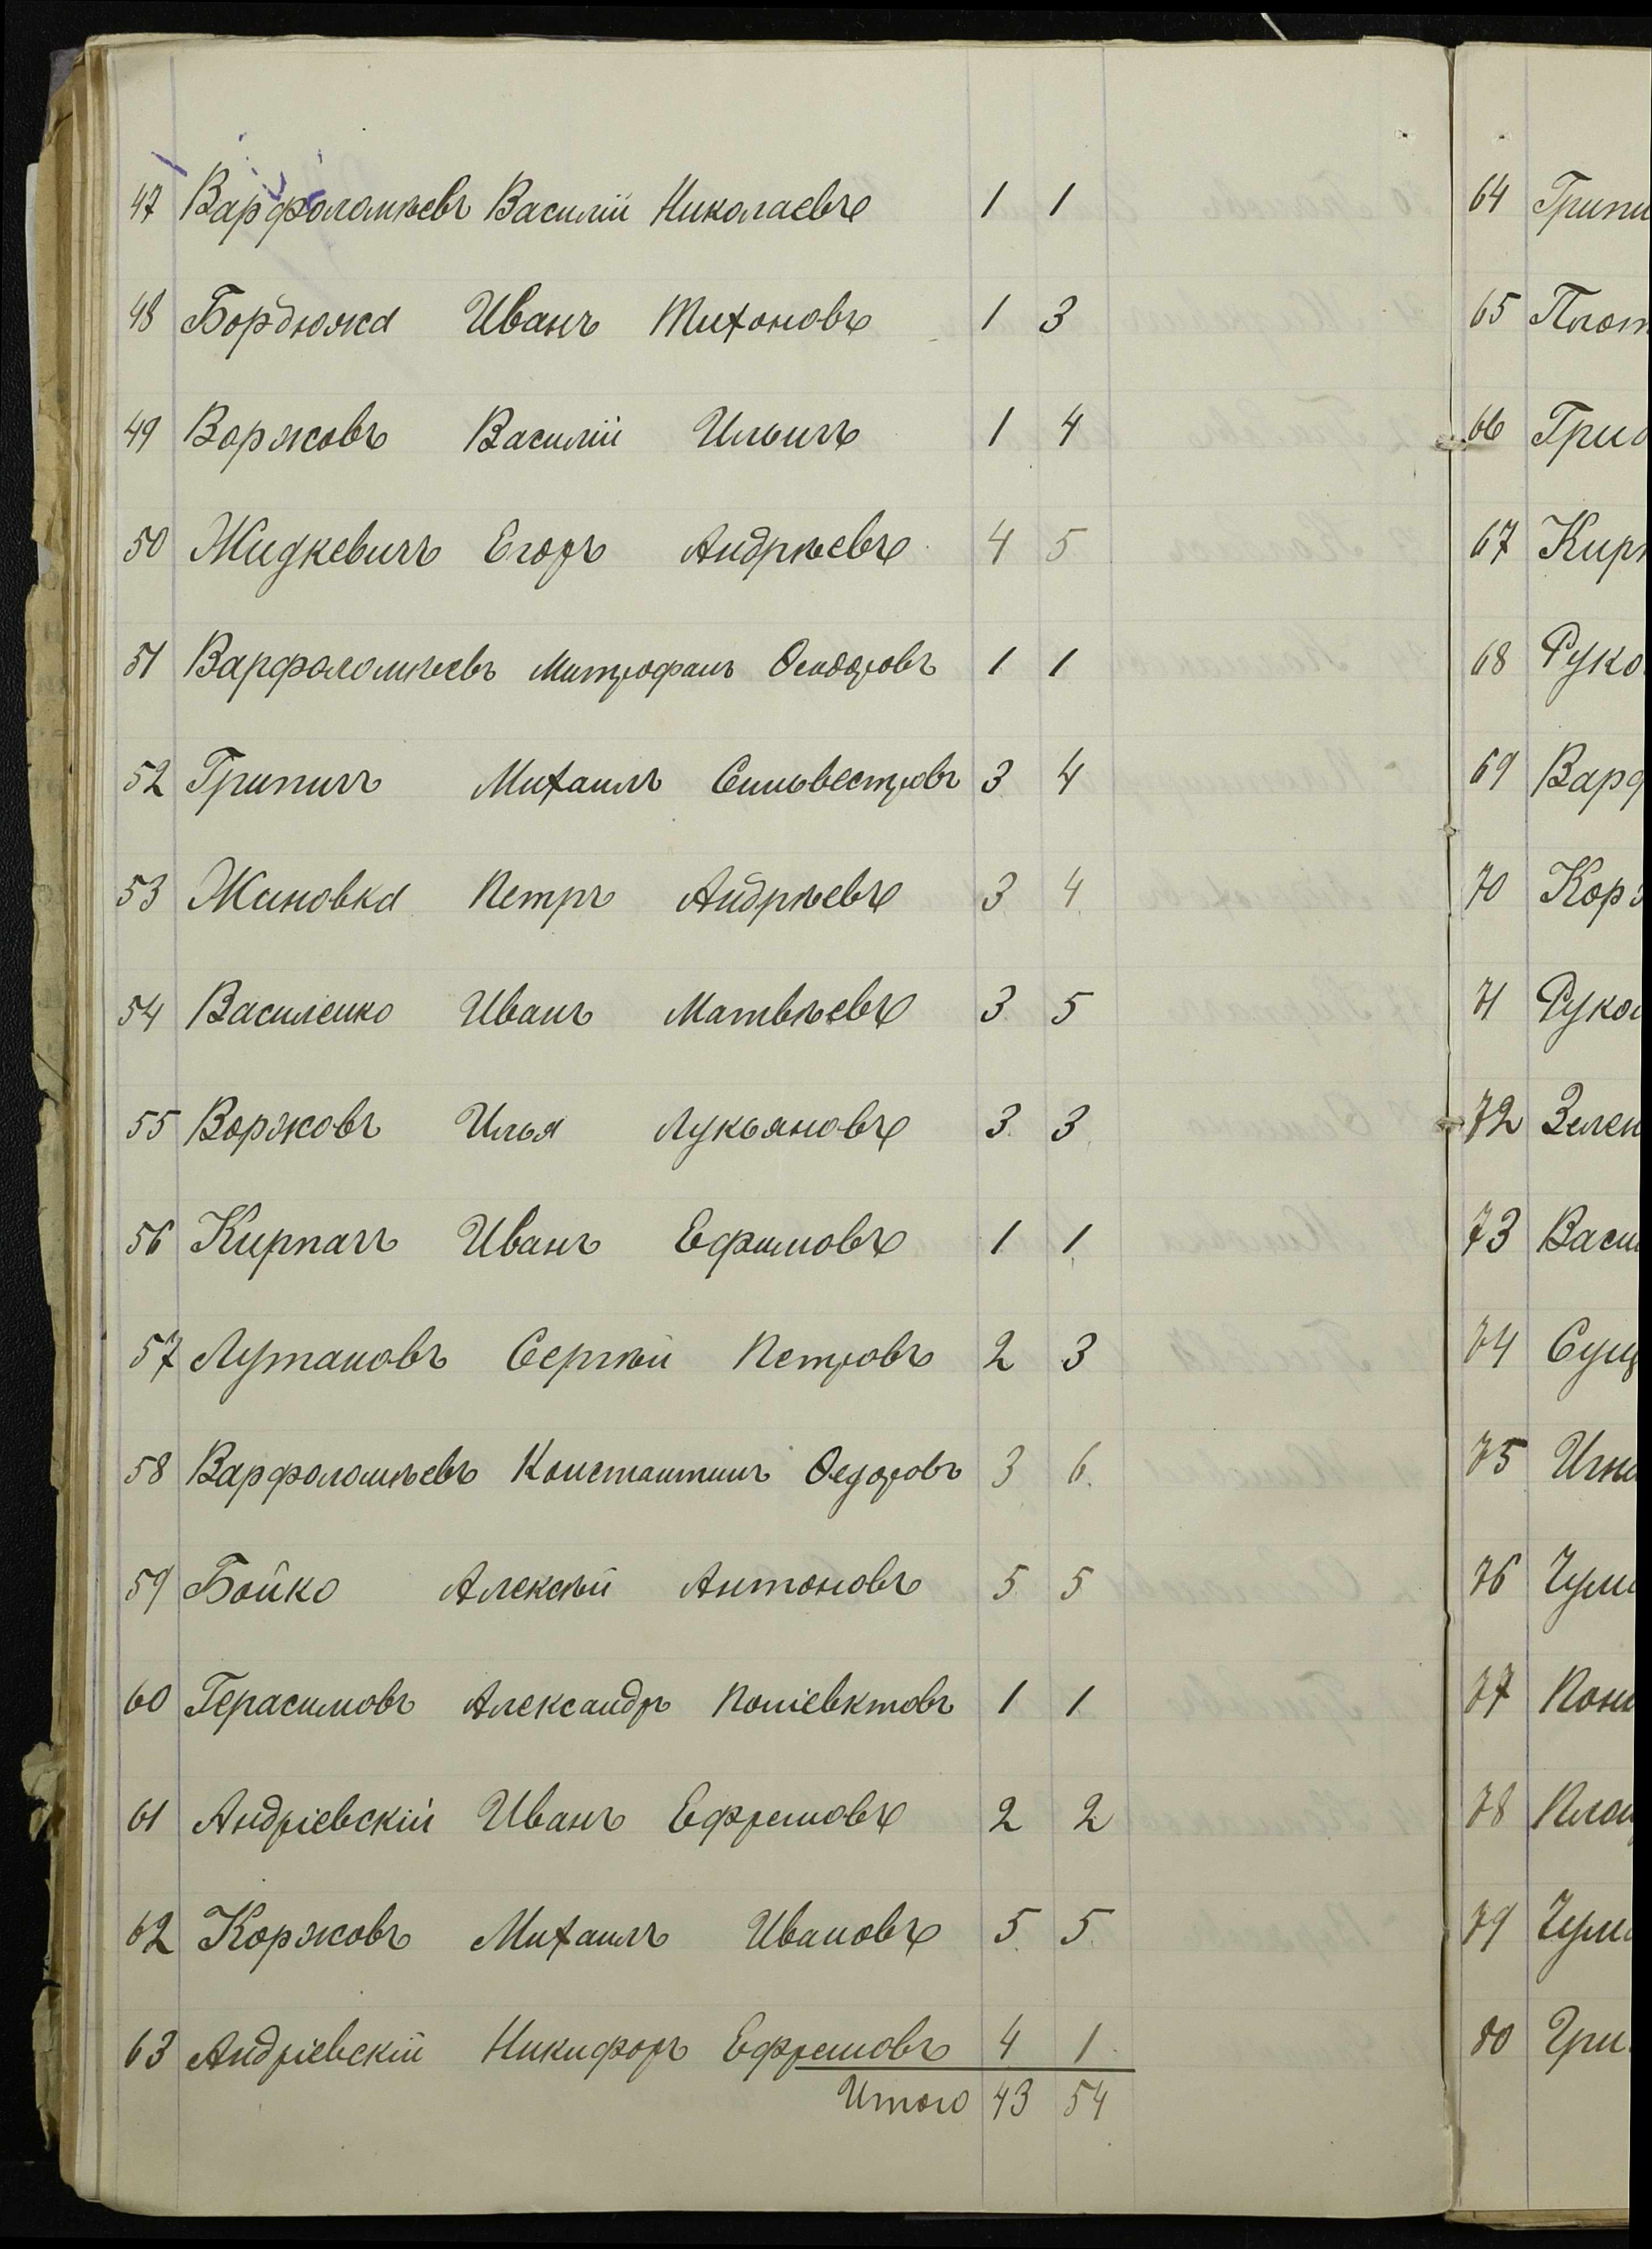 47 Варфоломѣевъ Василій Николаевъ 1 1
48 Бордюжа Иванъ Тихоновъ 1 3
49 Воржовъ Василій Ильичъ 1 4
50 Жидкевичъ Егоръ Андрѣевъ 4 5
51 Варфоломѣевъ Митрофанъ Ѳеодоровъ 1 1
52 Грипичъ Михаилъ Сильвестровъ 3 4
53 Жиновка Петръ Андрѣевъ 3 4
54 Василенко Иванъ Матвѣевъ 3 5
55 Воржовъ Илья Лукьяновъ 3 3
56 Кирпачъ Иванъ Ефимовъ 1 1
57 Лутановъ Сергѣй Петровъ 2 3
58 Варфоломѣевъ Константинъ Ѳедоровъ 3 6
59 Бойко Алексѣй Антоновъ 5 5
60 Герасимовъ Александръ Поліевктовъ 1 1
61 Андріевскій Иванъ Ефремовъ 2 2
62 Коржовъ Михаилъ Ивановъ 5 5
63 Андріевскій Никифоръ Ефремовъ 4 1
Итого 43 54
64
65
66
67
68
69
70
71
72
73
74
75
76
77
78
79
80